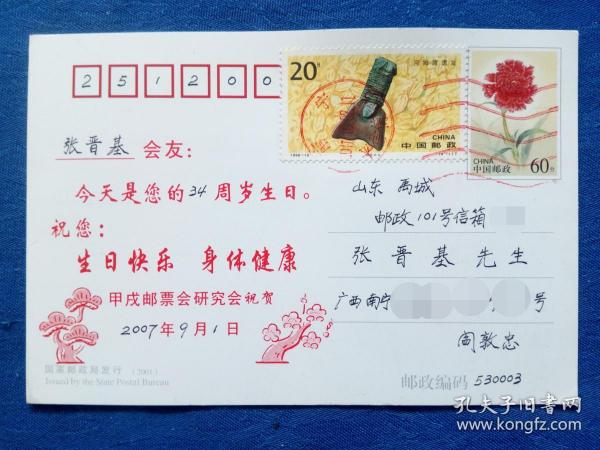 251200
20分
CHINA
中国邮政
CHINA
中国邮政 60分
张晋基 会友:
今天是您的34周岁生日。
祝您:
生日快乐 身体健康
甲戌邮票会研究会祝贺
2007年9月1日
国家邮政局发行 (2001)
Issued by the State Postal Bureau
山东 禹城
邮政101号信箱
张晋基先生
广西南宁 号
阎敦忠
邮政编码 530003
孔夫子旧书网
www.kongfz.com